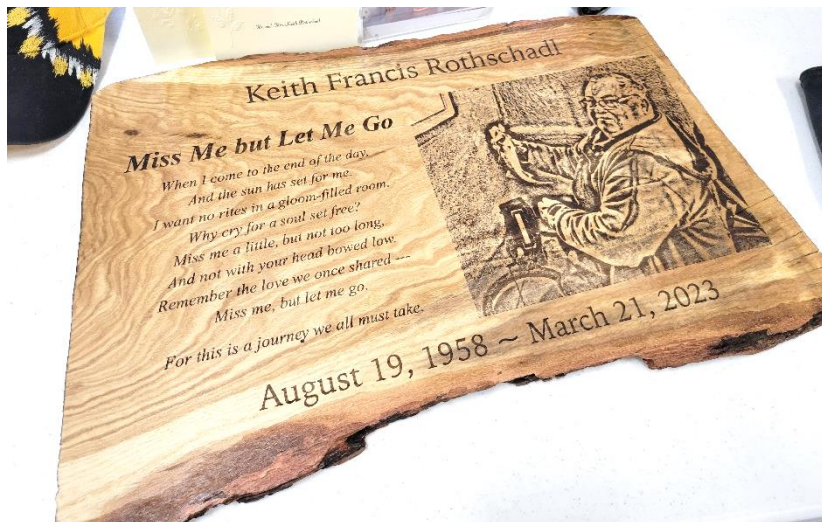 Keith Francis Rothschadl
Miss Me but Let Me Go
When I come to the end of the day,
And the sun has set for me.
I want no rites in a gloom-filled room.
Why cry for a soul set free?
Miss me a little, but not too long,
And not with your head bowed low.
Remember the love we once shared ---
Miss me, but let me go.
For this is a journey we all must take.
August 19, 1958 ~ March 21, 2023